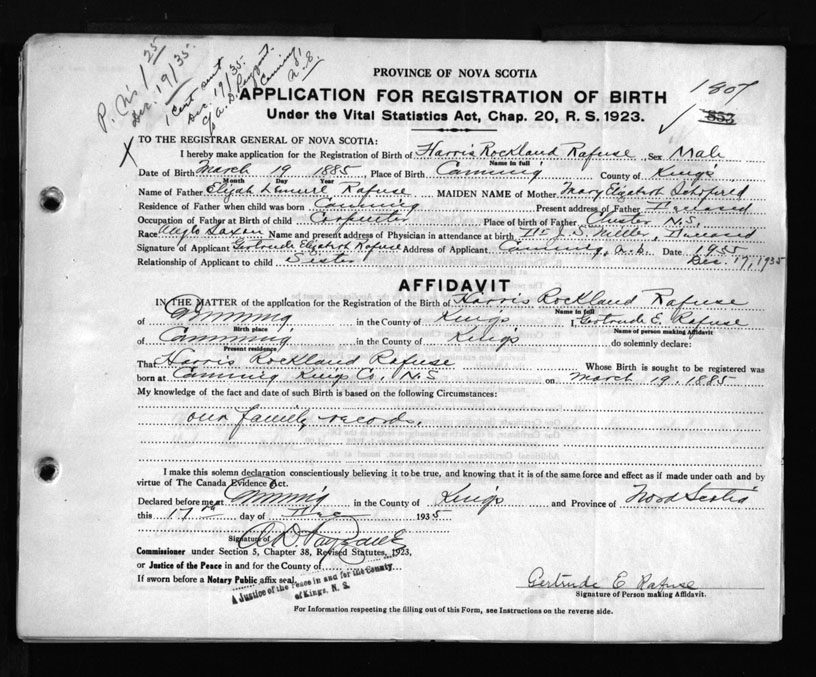 P. N's / 25
Dec. 19/35.
1 Cert sent
Dec. 19/35.
c/o A. D. Payzant
Canning,
N.S.
PROVINCE OF NOVA SCOTIA
APPLICATION FOR REGISTRATION OF BIRTH
Under the Vital Statistics Act, Chap. 20, R. S. 1923.
1807
853
TO THE REGISTRAR GENERAL OF NOVA SCOTIA:
I hereby make application for the Registration of Birth of Harris Rockland Rafuse Sex Male
Name in full
Date of Birth March 19 1885 Place of Birth Canning County of Kings
Month Day Year
Name of Father Elijah Lemuel Rafuse MAIDEN NAME of Mother Mary Elizabeth
Residence of Father when child was born Canning Present address of Father Deceased
Occupation of Father at Birth of child Carpenter Place of birth of Father Chester N.S.
Race Anglo Saxon Name and present address of Physician in attendance at birth Dr. J. S. Miller, Deceased
Signature of Applicant Gertrude Elizabeth Rafuse Address of Applicant Canning, N.S. Date 1935
Relationship of Applicant to child Sister Dec. 17, 1935
AFFIDAVIT
IN THE MATTER of the application for the Registration of the Birth of Harris Rockland Rafuse
Name in full
of Canning in the County of Kings I, Gertrude E. Rafuse
Birth place Name of person making Affidavit
of Canning in the County of Kings do solemnly declare:
Present residence
That Harris Rockland Rafuse Whose Birth is sought to be registered was
born at Canning Kings Co. N.S on March 19, 1885
My knowledge of the fact and date of such Birth is based on the following Circumstances:
our family records.
I make this solemn declaration conscientiously believing it to be true, and knowing that it is of the same force and effect as if made under oath and by
virtue of The Canada Evidence Act.
Declared before me at Canning in the County of Kings and Province of Nova Scotia
this 17th day of Dec 1935
Signature of A. D. Payzant
Commissioner under Section 5, Chapter 38, Revised Statutes, 1923,
or Justice of the Peace in and for the County of
If sworn before a Notary Public affix seal.
A Justice of the Peace in and for the County
of Kings, N. S.
Gertrude E Rafuse
Signature of Person making Affidavit.
For Information respecting the filling out of this Form, see Instructions on the reverse side.